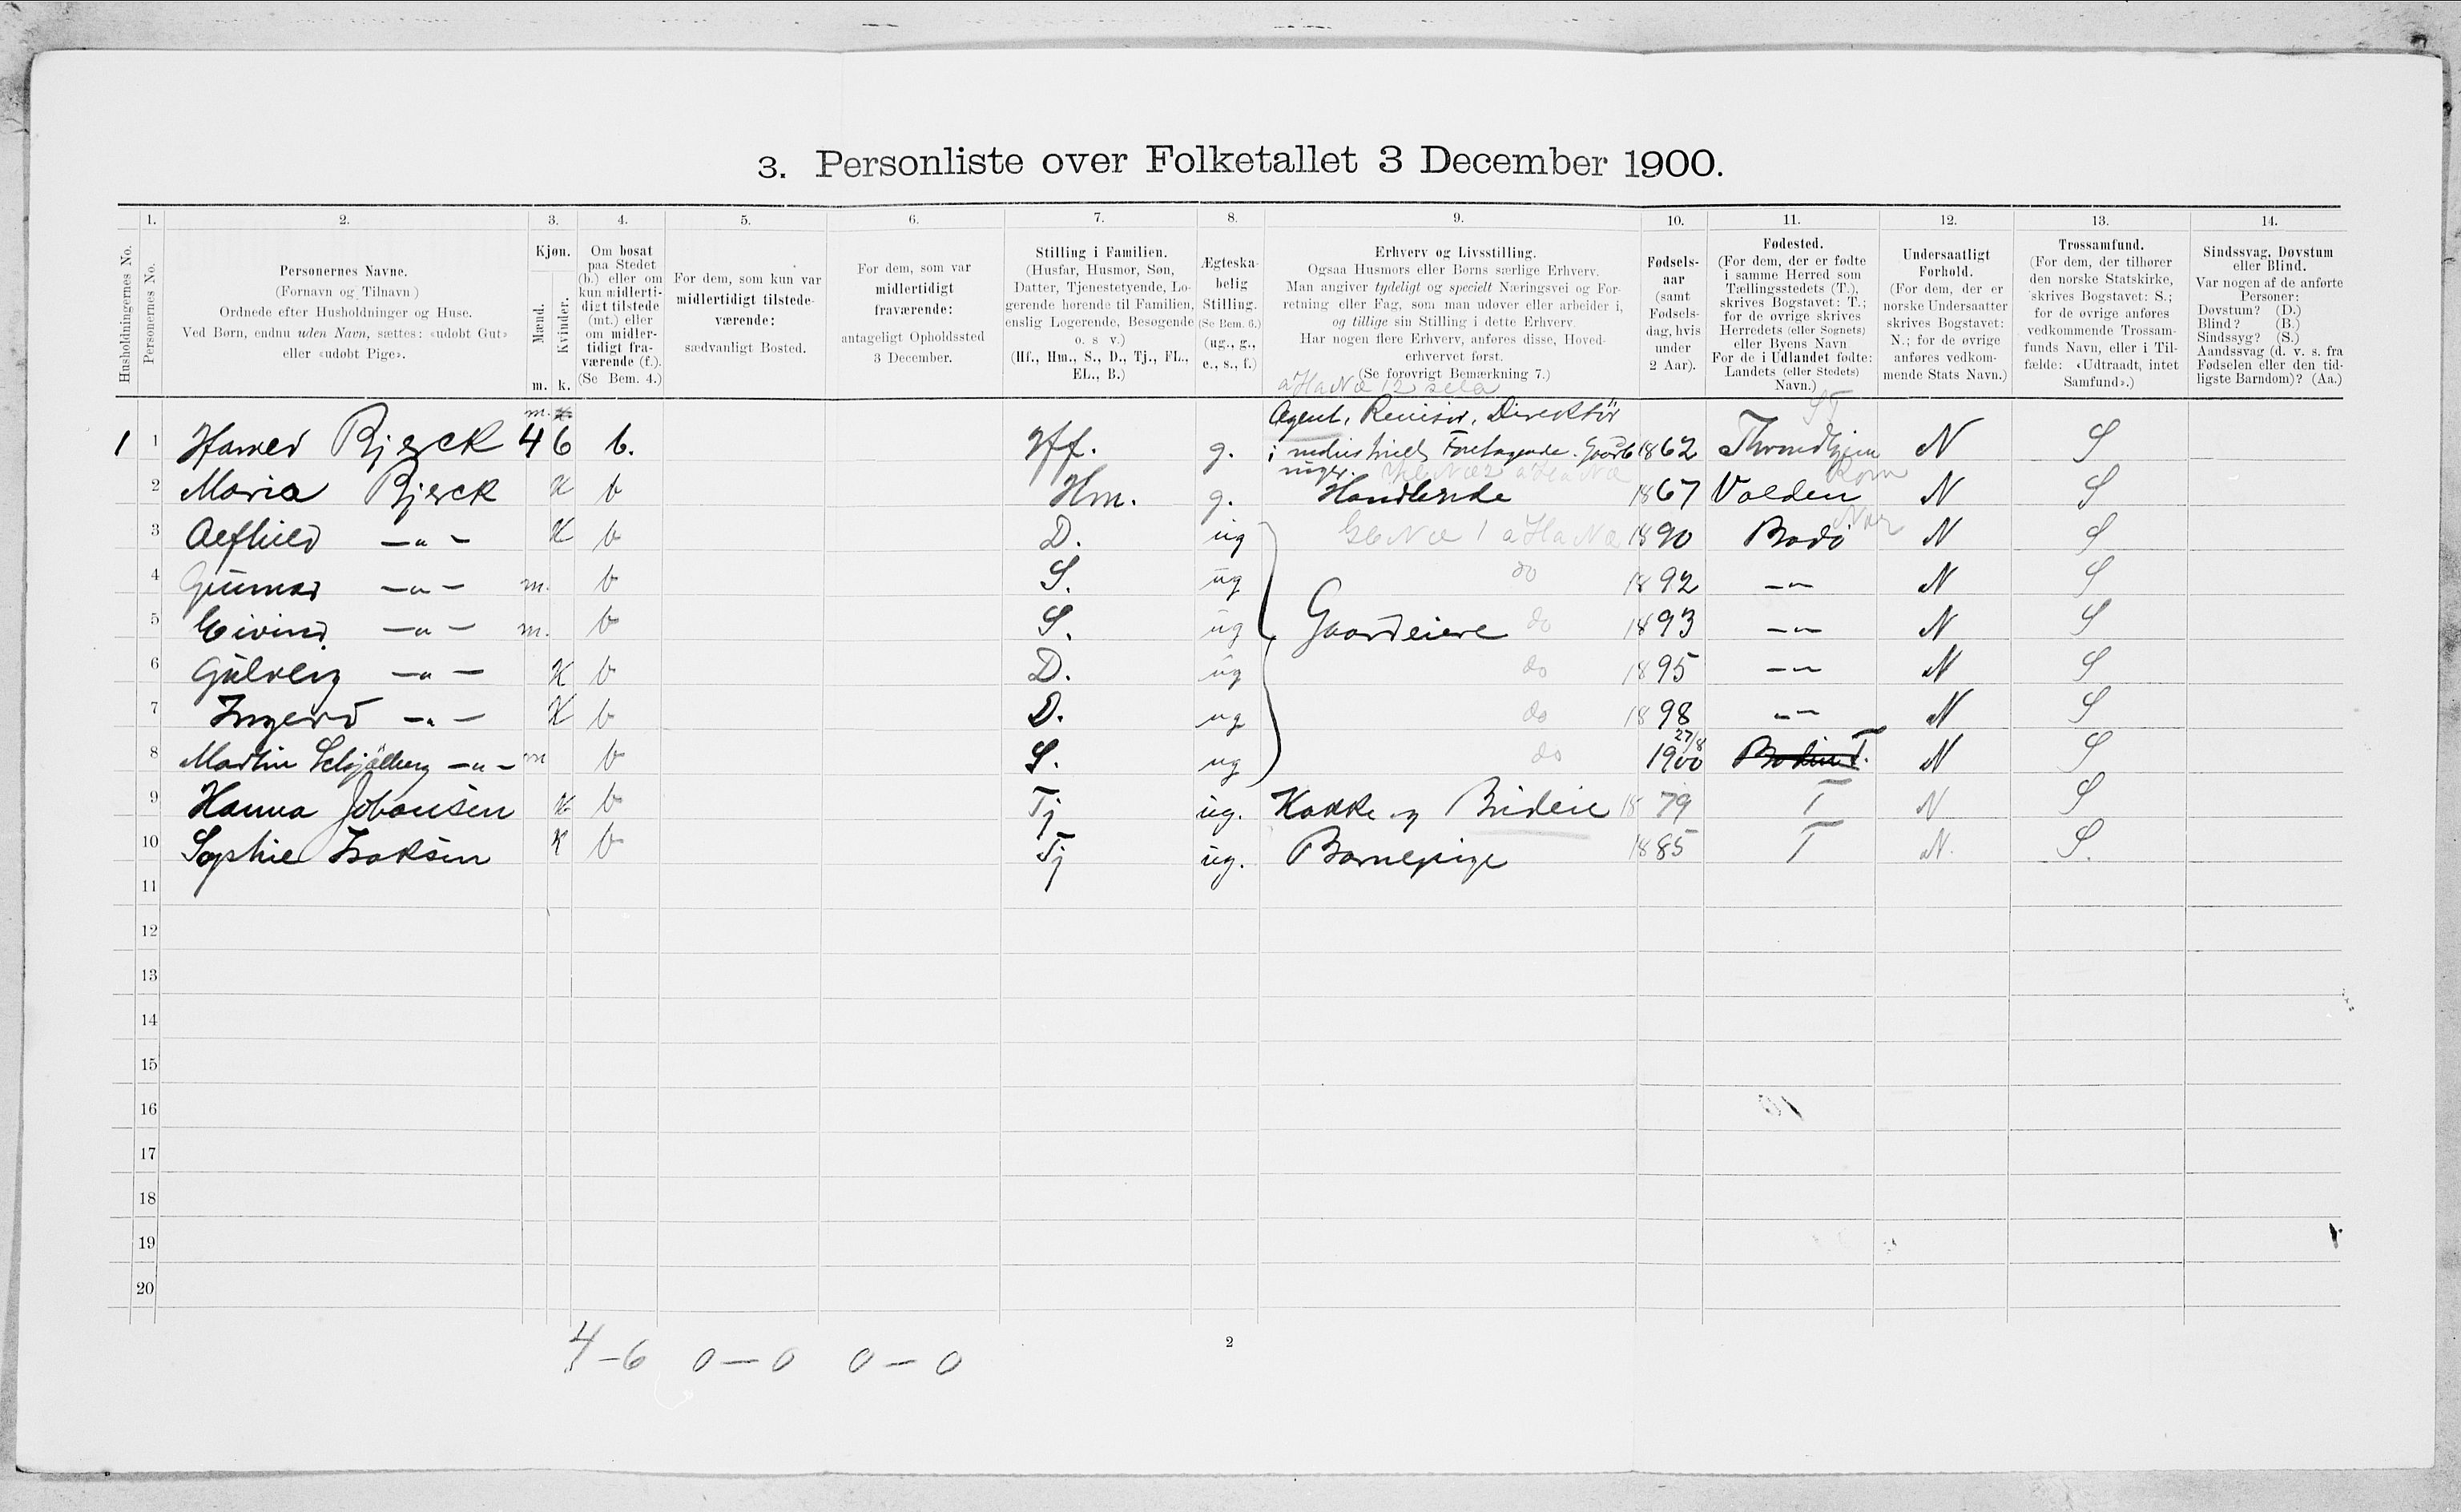 3. Personliste over Folketallet 3 December 1900.
1. 2. 3. 4. 5. 6. 7. 8. 9. 10. 11. 12. 13. 14.
Husholdningernes No.
Personernes No.
Personernes Navne.
(Fornavn og Tilnavn)
Ordnede efter Husholdninger og Huse.
Ved Børn, endnu uden Navn, sættes: «udøbt Gut»
eller «udøbt Pige».
Kjøn.
Mænd.
Kvinder.
m. k.
Om bosat
paa Stedet
(b.) eller om
kun midlerti-
digt tilstede
(mt.) eller
om midler-
tidigt fra-
værende (f.).
(Se Bem. 4.)
For dem, som kun var
midlertidigt tilstede-
værende:
sædvanligt Bosted.
For dem, som var
midlertidigt
fraværende:
antageligt Opholdssted
3 December.
Stilling i Familien.
(Husfar, Husmor, Søn,
Datter, Tjenestetyende, Lo-
gerende hørende til Familien,
enslig Logerende, Besøgende
o. s v.)
(Hf., Hm., S., D., Tj., FL.,
EL., B.)
Ægteska-
belig
Stilling.
(Se Bem. 6.)
(ug., g.,
e., s., f.)
Erhverv og Livsstilling.
Ogsaa Husmors eller Børns særlige Erhverv.
Man angiver tydeligt og specielt Næringsvei og For-
retning eller Fag, som man udøver eller arbeider i,
og tillige sin Stilling i dette Erhverv.
Har nogen flere Erhverv, anføres disse, Hoved-
erhvervet først.
(Se forøvrigt Bemærkning 7.)
Fødsels-
aar
(samt
Fødsels-
dag, hvis
under
2 Aar).
Fødested.
(For dem, der er fødte
i samme Herred som
Tællingsstedets (T.),
skrives Bogstavet: T.;
for de øvrige skrives
Herredets (eller Sognets)
eller Byens Navn
For de i Udlandet fødte:
Landets (eller Stedets)
Navn.)
Undersaatligt
Forhold.
(For dem, der er
norske Undersaatter
skrives Bogstavet:
N.; for de øvrige
anføres vedkom-
mende Stats Navn.)
Trossamfund.
(For dem, der tilhører
den norske Statskirke,
skrives Bogstavet: S.;
for de øvrige anføres
vedkommende Trossam-
funds Navn, eller i Til-
fælde: «Udtraadt, intet
Samfund».)
Sindssvag, Døvstum
eller Blind.
Var nogen af de anførte
Personer:
Døvstum? (D.)
Blind? (B.)
Sindssyg? (S.)
Aandssvag (d. v. s. fra
Fødselen eller den tid-
ligste Barndom)? (Aa.)
Agent, Revisor, Direktör
1 1 Bjerck 4 6 b. Hf. g. i 1862 Throndhjem N S
2 Maria Bjerck K b Hm. g. Handlende 1867 N S
3 —"— K b D. ug 1890 Bodö N S
4 Gunnar —"— m. b S. ug do 1892 —"— N S
5 Eivind —"— m. b S. ug Gaardeiere do 1893 —"— N S
6 —"— K b D. ug do 1895 —"— N S
7 Ingerd —"— K b D. ug do 1898 —"— N S
8 Martin —"— m b S. ug do 27/8 1900 T. N S
9 Hanna Johansen K b Tj ug. Kokke og Budeie 1879 T N S
10 Sophie Isaksen K b Tj ug. Barnepige 1885 T N. S.
11
12
13
14
15
16
17
18
19
20
4-6 0-0 0-0
2